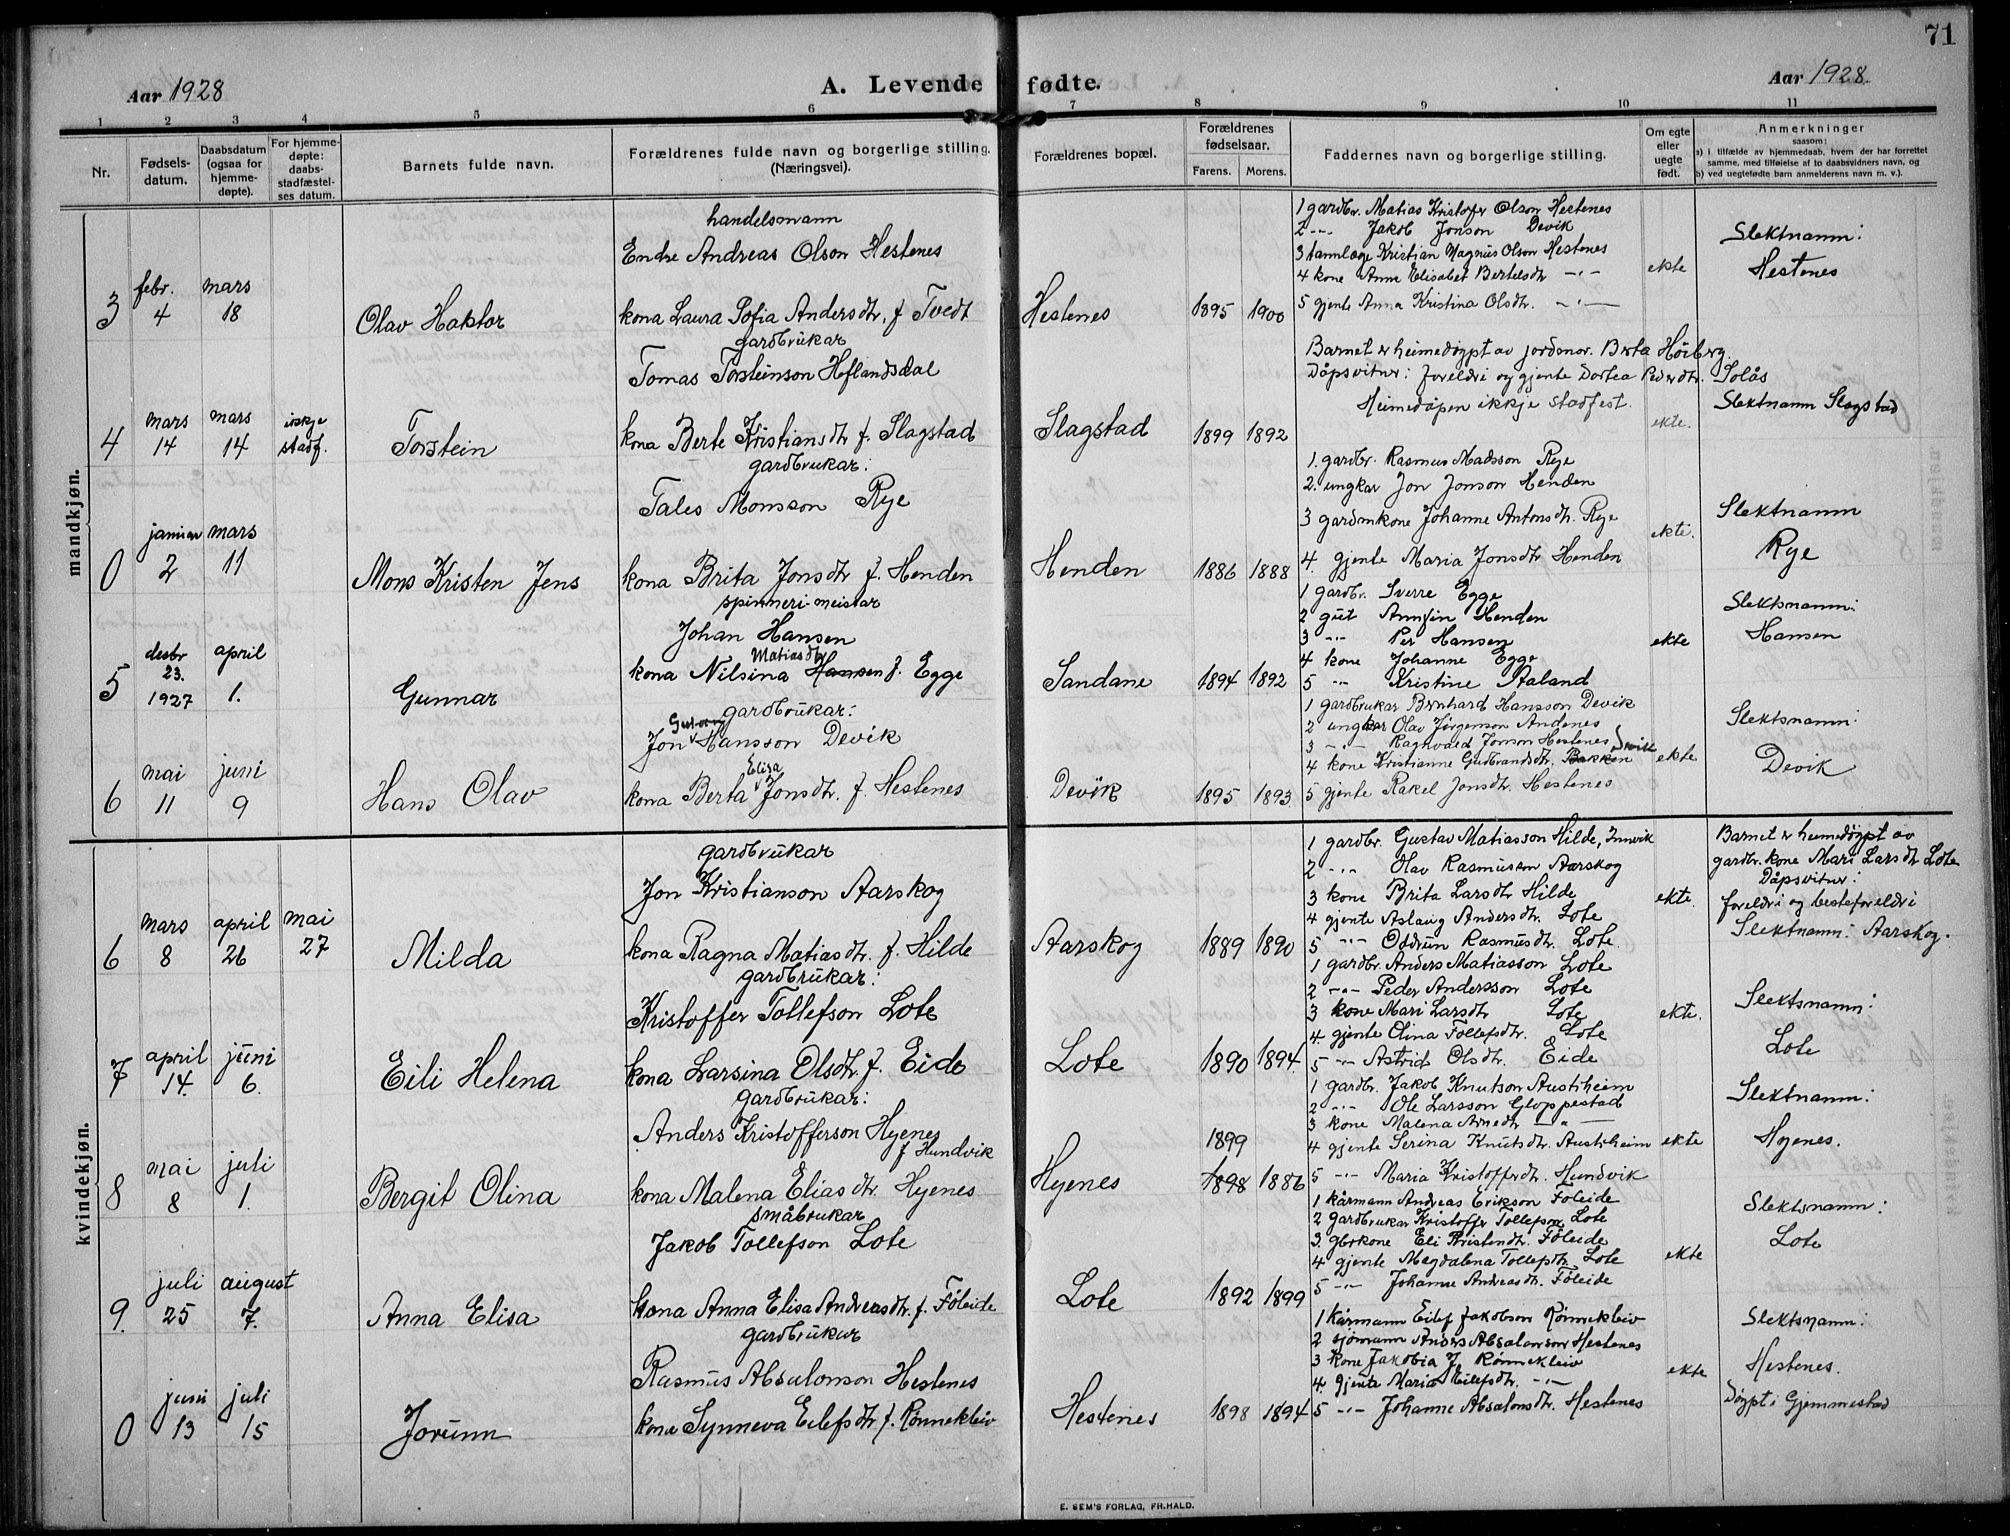 71
Aar 1928
A. Levende fødte.
Aar 1928.
1 2 3 4 5 6 7 8 9 10 11
Nr.
Fødsels-
datum.
Daabsdatum
(ogsaa for
hjemme-
døpte).
For hjemme-
døpte:
daabs-
stadfæstel-
ses datum.
Barnets fulde navn.
Forældrenes fulde navn og borgerlige stilling.
(Næringsvei).
Forældrenes bopæl.
Forældrenes
fødselsaar.
Farens. Morens.
Faddernes navn og borgerlige stilling.
Om egte
eller
uegte
født.
Anmerkninger
saasom:
a) i tilfælde av hjemmedaab, hvem der har forrettet
samme, med tilføielse af to daabsvidners navn, og
b) ved uegtefødte barn anmelderens navn m. v.).
mandkjøn.
3
febr. 4
mars 18
Olav Haktor
handelsmann
Endre Andreas Olson Hestenes
kona Laura Sofia Andersdtr. f. Tvedt
Hestenes
1895 1900
1 gardbr. Matias Kristofer Olson Hestenes
2 -"- Jakob Jonson Devik
3 tannlæge Kristian Magnus Olson Hestenes
4 kone Anne Elisabet Bertelsdtr -"-
5 gjente Anna Kristina Olsdtr. -"-
ekte
Slektnamn:
Hestenes
4
mars 14
mars 14
ikkje
stadf.
Torstein
gardbrukar
Tomas Torsteinson Heflandsdal
kona Berte Kristiansdtr f. Slagstad
Slagstad
1899 1892
Barnet er heimedøypt av jordmor. Berta Hörberg.
Dåpsvitner: foreldri og gjente Dortea Pedersdtr. Solås
Heimedåpen ikkje stadfest.
ekte.
Slektnamn Slagstad
0
januar 2
mars 11
Mons Kristen Jens
gardbrukar:
Tales Monsson Rye
kona Brita Jonsdtr f. Henden
Henden
1886 1888
1. gardbr. Rasmus Madsson Rye
2. ungkar Jon Jonson Henden
3 gardmkone Johanne Antonsdtr. Rye
4. gjente Maria Jonsdtr Henden
ekte.
Slektnamn
Rye
5
desbr
23.
1927
april
1.
Gunnar
spinneri-meistar
Johan Hansen
Matiasdtr
kona Nilsina Hansen f. Egge
Sandane
1894 1892
1 gardbr. Sverre Egge
2 gut Annfin Henden
3 -"- Per Hansen
4 kone Johanne Egge
5 -"- Kristine Aaland
ekte
Slektsnamn:
Hansen
6
mai 11
juni 9
Hans Olav
gardbrukar:
Jon Hansson Devik
Elisa
kona Berta Jonsdtr. f. Hestenes
Devik
1895 1893.
1 gardbrukar Bernhard Hansson Devik
2 ungkar Olav Jørgenson Andenes
3 -"- Ragnvald Jonson Hestenes
4 kone Kristianne Gudbrandsdtr. Bakken Devik
5 gjente Rakel Jonsdtr. Hestenes
ekte
Slektsnamn:
Devik
kvindekjøn.
6
mars 8
april 26
mai 27
Milda
gardbrukar
Jon Kristianson Aarskog
kona Ragna Matiasdtr. f. Hilde
Aarskog
1889 1890
1 gardbr. Gustav Matiasson Hilde, Innvik
2 -"- Olav Rasmussen Aarskog
3 kone Brita Larsdtr Hilde
4 gjente Aslaug Andersdtr. Lote
5 -"- Oddrun Rasmusdtr. Lote
ekte.
Barnet er heimedøypt av
gardbr. kone Mari Larsdtr Lote
Dåpsvitner:
foreldri og besteforeldri
Slektnamn: Aarskog.
7
april 14.
juni 6.
Eili Helena
gardbrukar:
Kristoffer Tollefson Lote
kona Larsina Olsdtr f. Eide
Lote
1890 1894
1 gardbr. Anders Matiasson Lote
2 -"- Peder Andersson Lote
3 kone Mari Larsdtr Lote
4 gjente Olina Tollefsdtr. Lote
5 -"- Astrid Olsdtr. Eide
ekte.
Slektsnamn:
Lote
8
mai 8
juli 1.
Bergit Olina
gardbrukar:
Anders Kristofferson Hyenes
f Hundvik
kona Malena Eliasdtr. Hyenes
Hyenes
1899
1898 1886
1 gardbr. Jakob Knutson Austrheim
2 -"- Ole Larsson Gloppestad
3 kone Malena Arnedtr -"-
4 gjente Serina Knutsdtr. Austrheim
5 -"- Maria Kristoffersdtr. Hundvik
ekte
Slektsnamn:
Hyenes.
9.
juli 25
august 7.
Anna Elisa
småbrukar
Jakob Tollefson Lote
kona Anna Elisa Andreasdtr. f. Föleide
Lote
1892 1899
1 kårmann Andreas Erikson Föleide
2 gardbrukar Kristoffer Tollefson Lote
3. gbrkone Eli Kristendtr. Föleide
4 gjente Magdalena Tollefsdtr. Lote
5 -"- Johanne Andreasdtr. Föleide
ekte
Slektsnamn:
Lote
0
juni 13
juli 15
Jorunn
gardbrukar
Rasmus Absalonson Hestenes
kona Synneva Eilefsdtr f. Rønnekleiv
Hestenes
1898 1894
1 kårmann Eilef Jakobson Rønnekleiv
2 sjömann Anders Absalonson Hestenes
3 kone Jakobia J. Rønnekleiv
4. gjente Maria Eilefsdtr. -"-
5 -"- Johanne Absalonsdtr. Hestenes
ekte
Slektsnamn:
Hestenes.
Døypt i Gjemmestad
E. SEM'S FORLAG, FR.HALD.